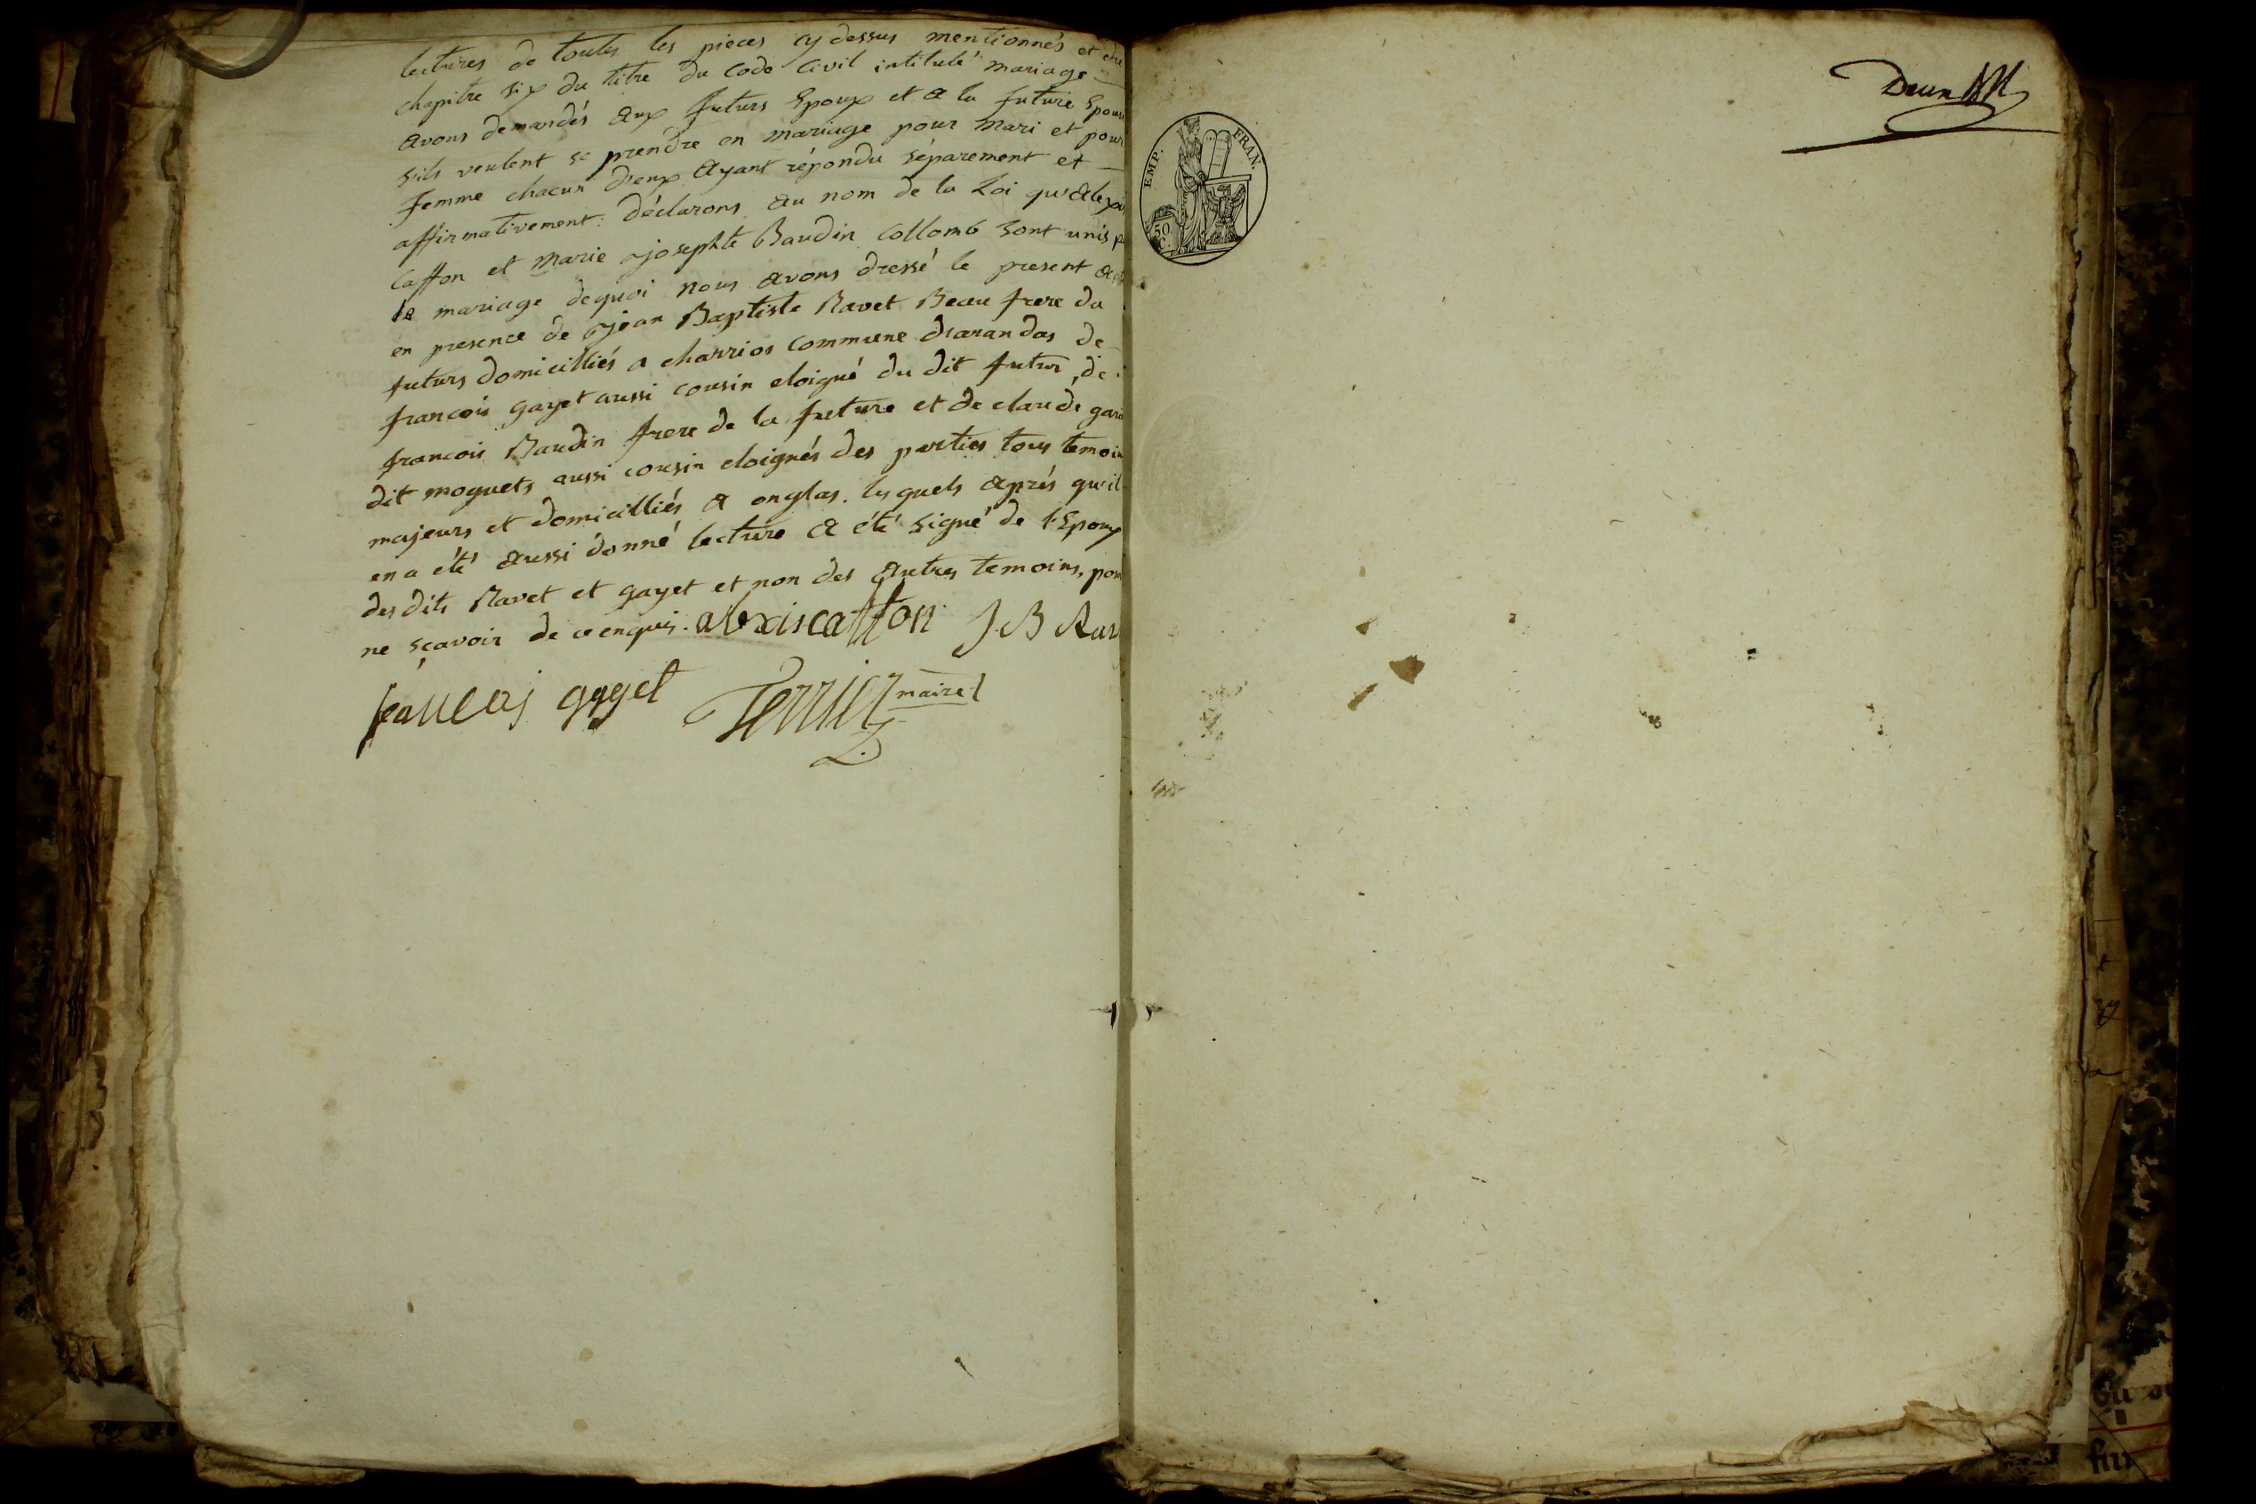 lectures de toutes les pieces cy dessus mentionnés et du
chapitre six du titre du Code Civil intitulé mariage
avons demandés aux futurs Epoux et a la future Epous
sils veulent se prendre en mariage pour Mari et pour
femme chacun d'eux ayant répondu séparement et
affirmativement: déclarons au nom de la Loi qu'alexis
Caffon et marie josephte Baudin Collomb sont unis p
le mariage dequoi nous avons dressé le present a
en presence de jean Baptiste Ravet Beau frere du
futurs domicilliés a charrios commune d'arandas de
francois gayet aussi cousin eloigné du dit futur, de
francois Baudin frere de la future et de claude gar
dit moguets aussi cousin eloignés des parties tous temoin
majeurs et domicilliés a onglas. lesquels aprés qu'il
en a été aussi donné lecture a été signé de l'Epoux
des dits Ravet et gayet et non des autres temoins, pour
ne sçavoir de ce enquis. alexis caffon J. B Rav
francois gayet Terrier maire
EMP. FRAN.
50 C.